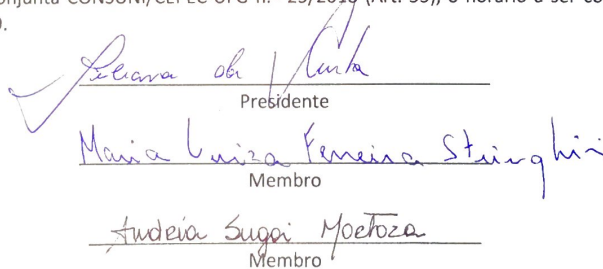 onjunta CONSUNI/CEPEC UFG n.º 25/2016 (Art. 35), o horário a ser co
).
Juliana da
Presidente
Maria Luiza Ferreira Stringhini
Membro
Andréia Sugai Mortoza
Membro